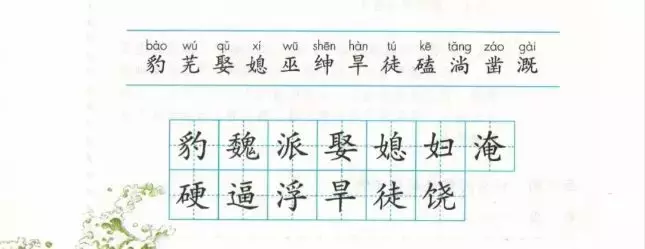 bào wú qǔ xí wū shēn hàn tú kē tǎng záo gài
豹 芜 娶 媳 巫 绅 旱 徒 磕 淌 凿 溉
豹 魏 派 娶 媳 妇 淹
硬 逼 浮 旱 徒 饶